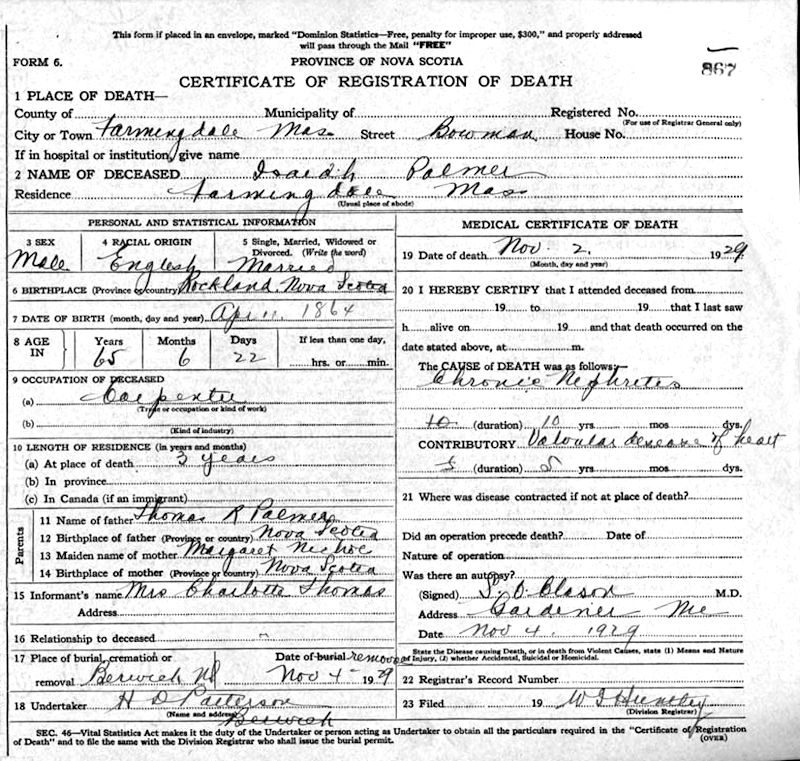 This form if placed in an envelope, marked "Dominion Statistics—Free, penalty for improper use, $300," and properly addressed
will pass through the Mail "FREE"
FORM 6.
PROVINCE OF NOVA SCOTIA
867
CERTIFICATE OF REGISTRATION OF DEATH
1 PLACE OF DEATH—
County of Municipality of Registered No.
(For use of Registrar General only)
City or Town Farmingdale Mas. Street Bowman House No.
If in hospital or institution, give name
2 NAME OF DECEASED Isaedh Palmer
Residence Farmingdale Mass
(Usual place of abode)
PERSONAL AND STATISTICAL INFORMATION
3 SEX 4 RACIAL ORIGIN 5 Single, Married, Widowed or
Divorced. (Write the word)
Male English Married
6 BIRTHPLACE (Province or country) Rockland Nova Scotia
7 DATE OF BIRTH (month, day and year) Apr 11 1864
8 AGE IN Years Months Days If less than one day,
65 6 22 hrs. or min.
9 OCCUPATION OF DECEASED
(a) Carpenter
(Trade or occupation or kind of work)
(b)
(Kind of industry)
10 LENGTH OF RESIDENCE (in years and months)
(a) At place of death 3 years
(b) In province
(c) In Canada (if an immigrant)
Parents
11 Name of father Thomas R Palmer
12 Birthplace of father (Province or country) Nova Scotia
13 Maiden name of mother Margaret Nichol
14 Birthplace of mother (Province or country) Nova Scotia
15 Informant's name Mrs Charlotte Thomas
Address
16 Relationship to deceased "
17 Place of burial, cremation or Date of burial removal
removal Berwick NS Nov 4 - 1929
18 Undertaker H D Patterson
(Name and address) Berwick
MEDICAL CERTIFICATE OF DEATH
19 Date of death Nov 2 1929
(Month, day and year)
20 I HEREBY CERTIFY that I attended deceased from
19 to 19 that I last saw
h alive on 19 and that death occurred on the
date stated above, at m.
The CAUSE of DEATH was as follows—
Chronic Nephretes
10 (duration) 10 yrs mos dys.
CONTRIBUTORY Valvular desease of heart
5 (duration) 5 yrs mos dys.
21 Where was disease contracted if not at place of death?
Did an operation precede death? Date of
Nature of operation
Was there an autopsy?
(Signed) S. O. Clason M.D.
Address Gardener Me
Date Nov 4. 1929
State the Disease causing Death, or in death from Violent Causes, state (1) Means and Nature
of Injury, (2) whether Accidental, Suicidal or Homicidal.
22 Registrar's Record Number
23 Filed 19 W I Huntley
(Division Registrar)
SEC. 46—Vital Statistics Act makes it the duty of the Undertaker or person acting as Undertaker to obtain all the particulars required in the "Certificate of Registration
of Death" and to file the same with the Division Registrar who shall issue the burial permit. (OVER)